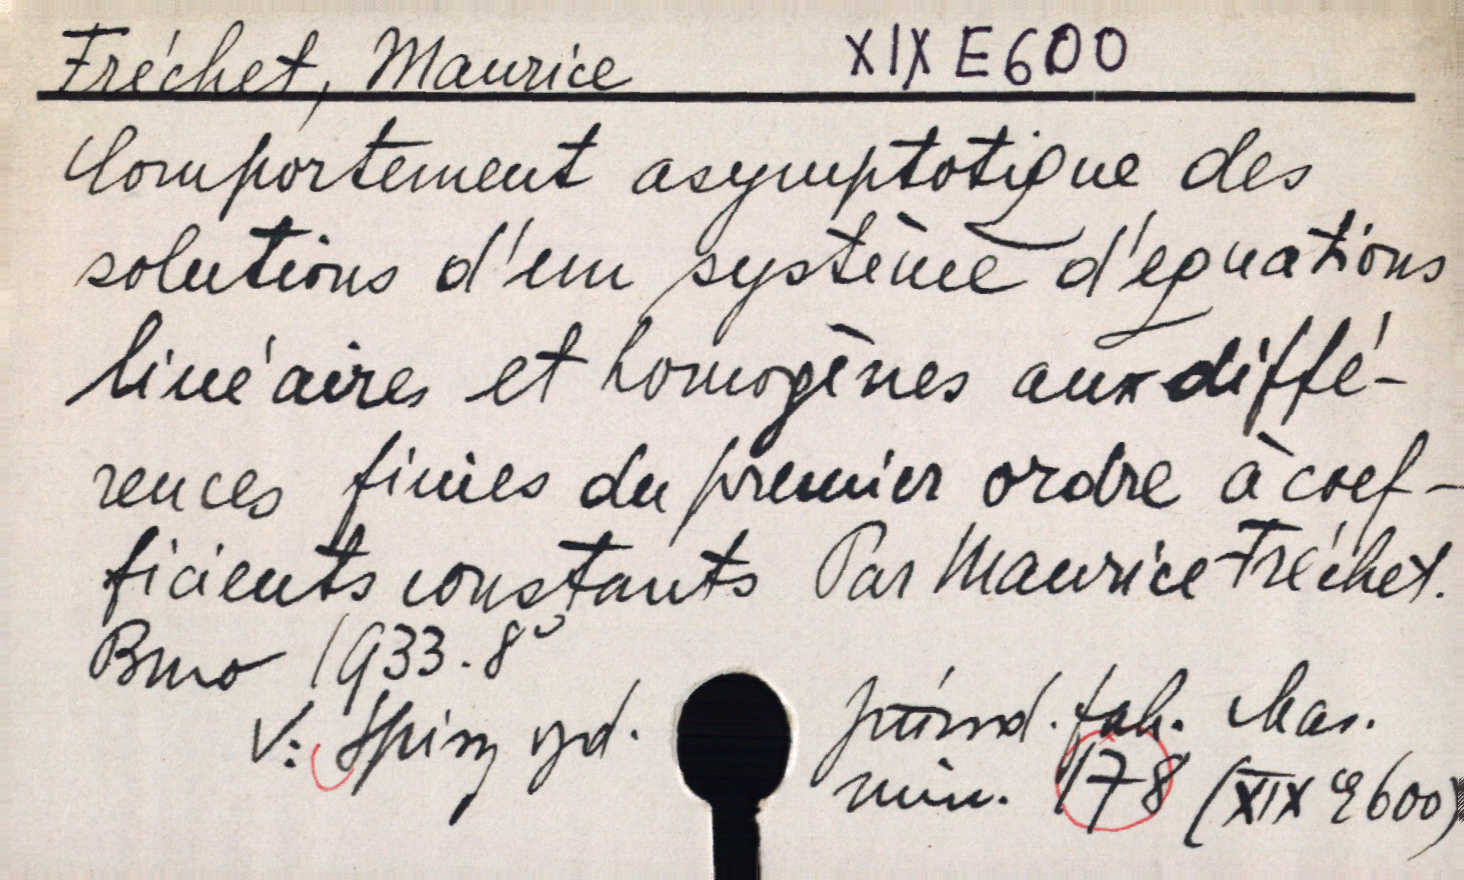 Fréchet, Maurice XIX E 600
Comportement asymptotique des
solutions d'un système d'equations
linéaires et homogènes aux diffé-
rences finies du premier ordre à coef-
ficients constants Par Maurice Fréchet.
Brno 1933. 8°
V: Spisy vyd. přírod. fak. Mas.
univ. 178 (XIX E 600)